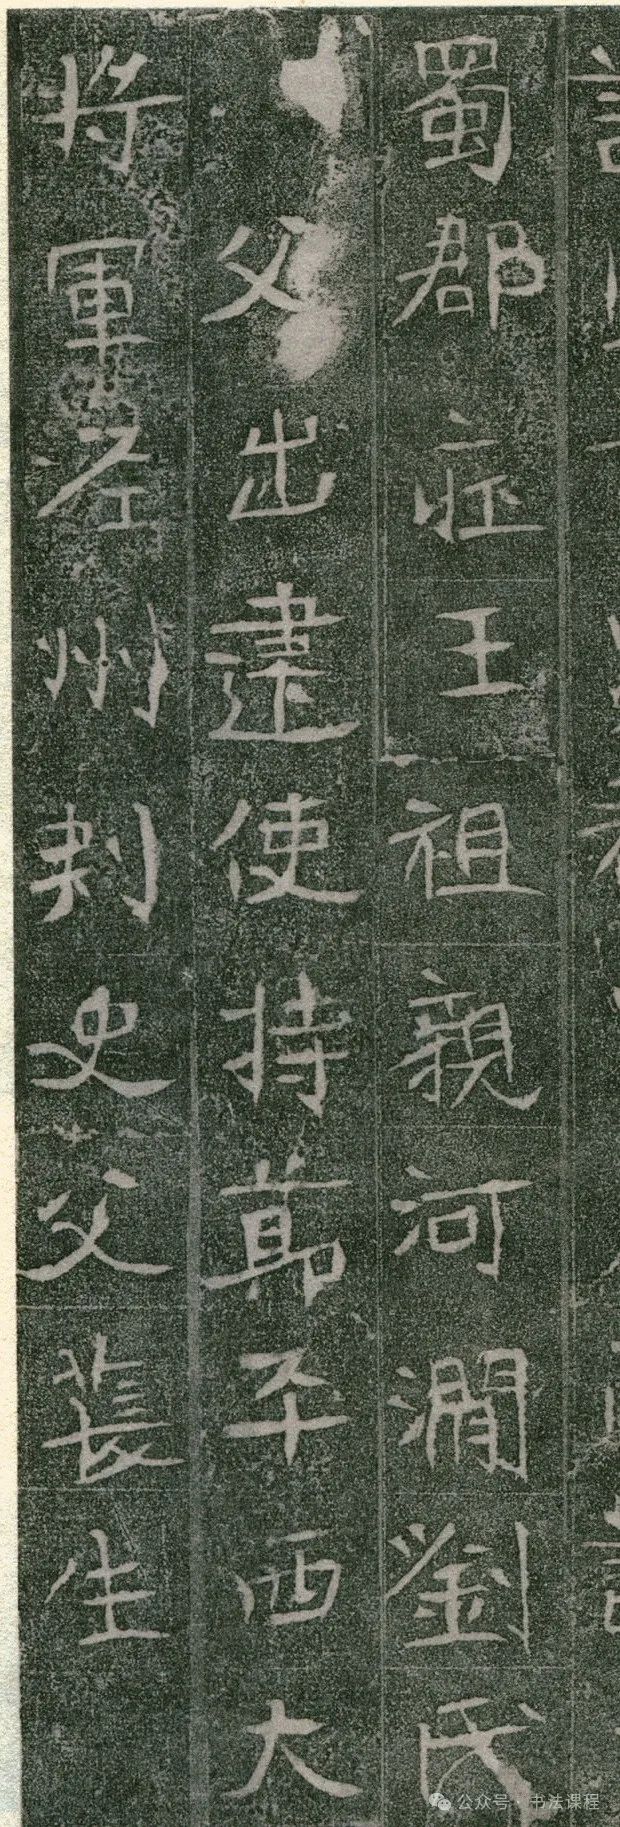 蜀郡王祖親河澗劉氏
父出建使持節平西大
將軍左州刺史父萇生
公众号·书法课程